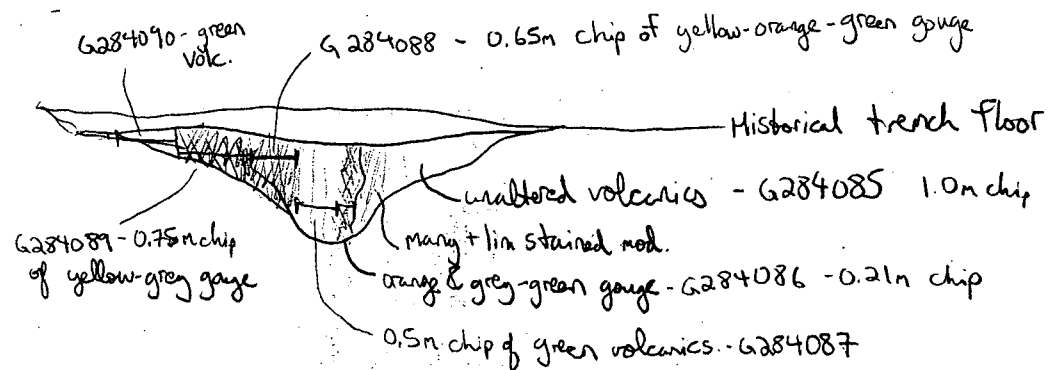 G284090 - green
volc.
G284088 - 0.65m chip of yellow-orange-green gouge
Historical trench floor
unaltered volcanics - G284085 1.0m chip
G284089 - 0.75m chip
of yellow-grey gouge
mang + lim stained mod.
orange & grey-green gouge - G284086 - 0.21m chip
0.5m chip of green volcanics - G284087